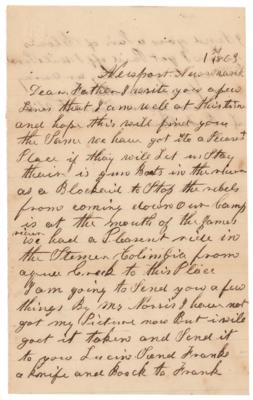 1863
Newport News
Dear Father I write you a few
lines that I am well at this time
and hope this will find you
the Same we have got ito a Pleasent
Place if thay will Let us Stay
their is gun Boats in the river
as a Blockaid to Stop the rebels
from coming down Our Camp
is at the mouth of the James
river we had a Pleasent ride in
the Stemer Columbia from
aquie Creek to this Place
I am going to Send you a few
things By Mr Norris I have not
got my Picture now But i will
goet it taken and Send it
to you Send Frank
a Knife and Boock to Frank